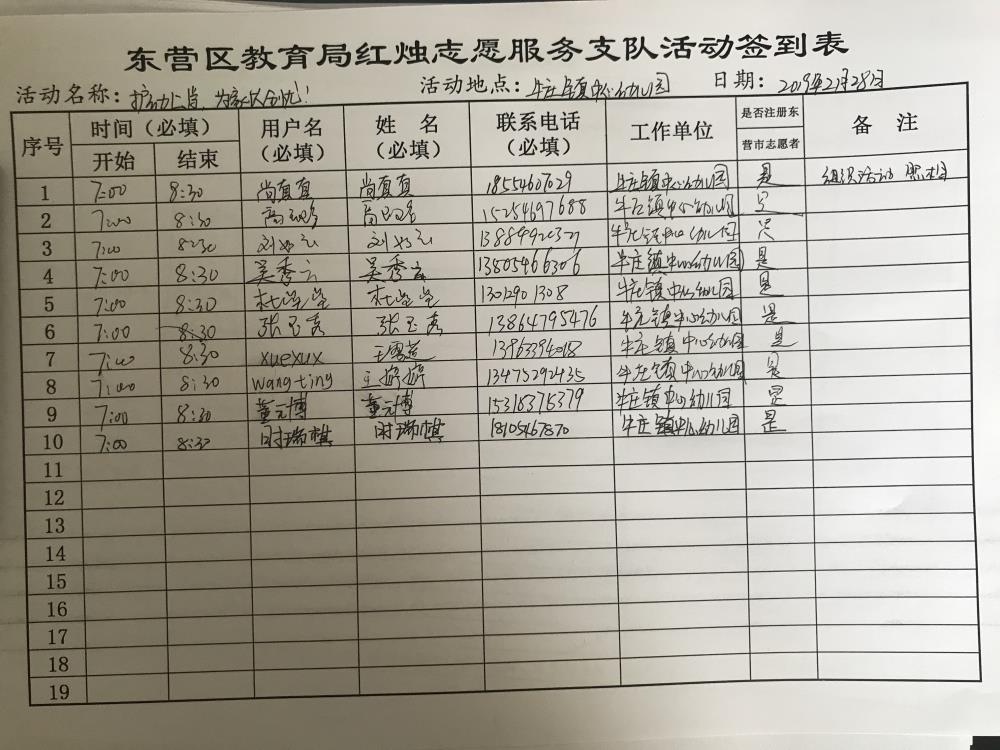 东营区教育局红烛志愿服务支队活动签到表
活动名称： 活动地点：牛庄镇中心幼儿园 日期：2019年2月28日
序号 时间（必填） 用户名（必填） 姓 名（必填） 联系电话（必填） 工作单位 是否注册东营市志愿者 备 注
开始 结束
1 7:00 8:30 尚真真 尚真真 18554607029 牛庄镇中心幼儿园 是 组织活动
2 7:00 8:30 15254697688 牛庄镇中心幼儿园 是
3 7:00 8:30 牛庄镇中心幼儿园 是
4 7:00 8:30 吴秀云 吴秀云 13805466306 牛庄镇中心幼儿园 是
5 7:00 8:30 杜莹莹 杜莹莹 13012901308 牛庄镇中心幼儿园 是
6 7:00 8:30 张玉秀 张玉秀 13864795476 牛庄镇中心幼儿园 是
7 7:00 8:30 xuexux 13963394018 牛庄镇中心幼儿园 是
8 7:00 8:30 wangting 王婷婷 13475292435 牛庄镇中心幼儿园 是
9 7:00 8:30 董元博 董元博 15315375379 牛庄镇中心幼儿园 是
10 7:00 8:30 时瑞棋 时瑞棋 18105467870 牛庄镇中心幼儿园 是
11
12
13
14
15
16
17
18
19